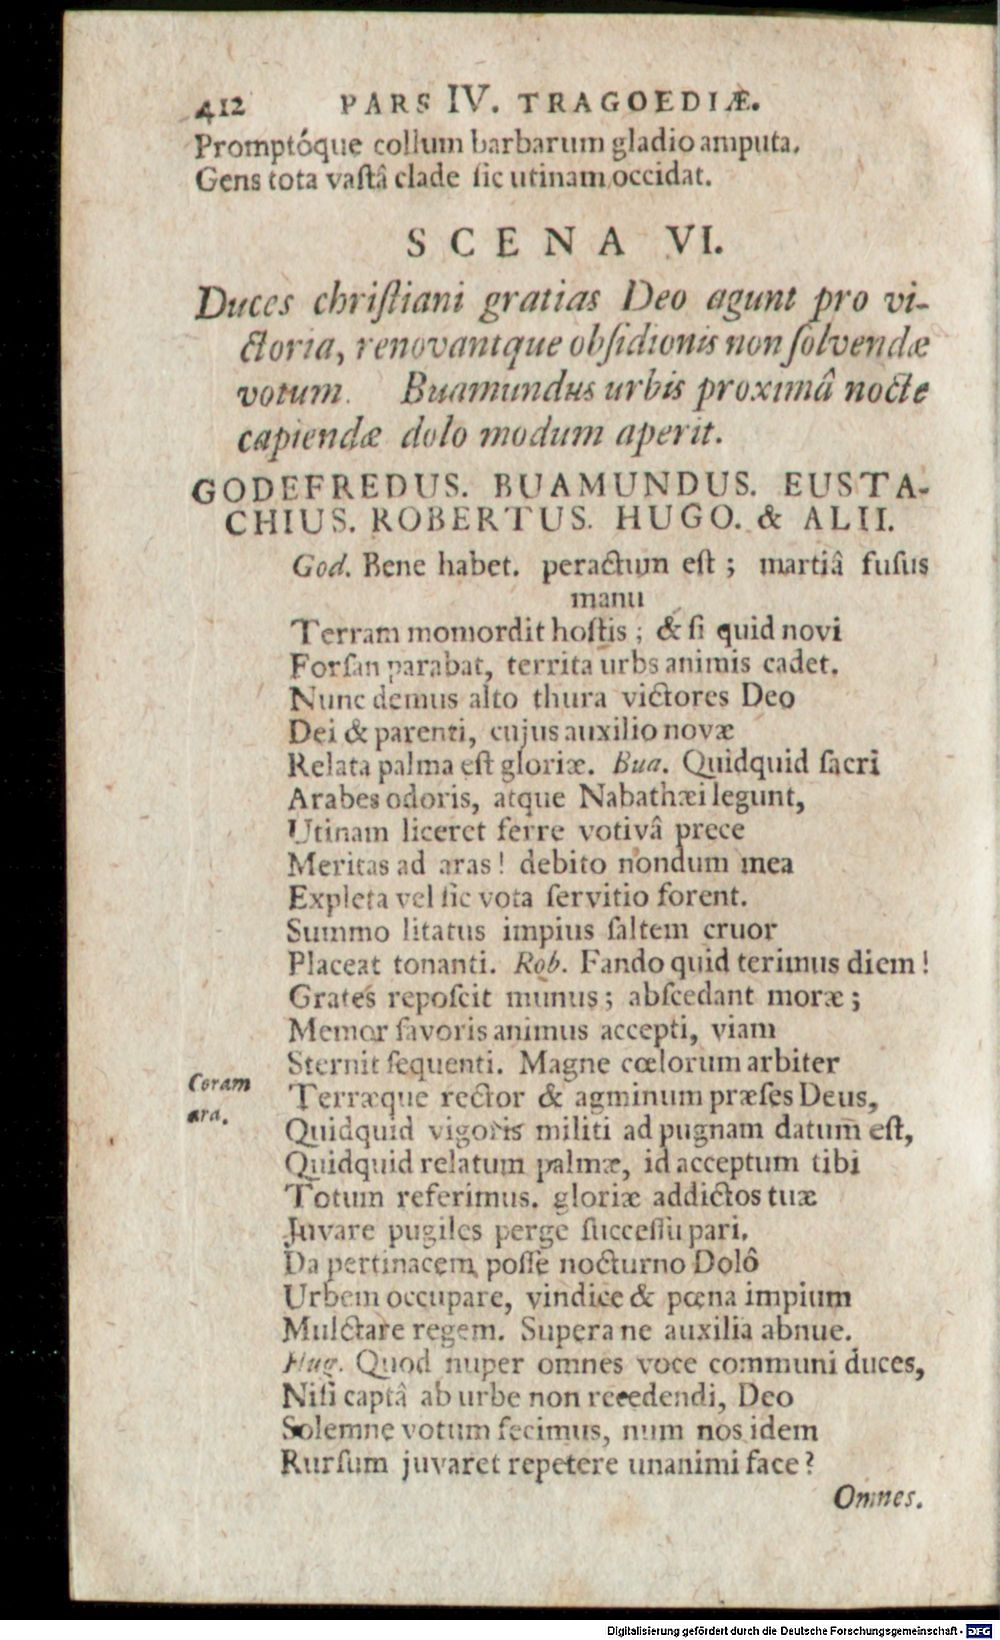 412 PARS IV. TRAGOEDIÆ.
Promptóque collum barbarum gladio amputa.
Gens tota vaſtâ clade ſic utinam occidat.
SCENA VI.
Duces chriſtiani gratias Deo agunt pro vi-
ctoria, renovantque obſidionis non ſolvendæ
votum. Buamundus urbis proximâ nocte
capiendæ dolo modum aperit.
GODEFREDUS. BUAMUNDUS. EUSTA-
CHIUS. ROBERTUS. HUGO. & ALII.
God. Bene habet. peractum eſt ; martiâ fuſus
manu
Terram momordit hoſtis ; & ſi quid novi
Forſan parabat, territa urbs animis cadet.
Nunc demus alto thura victores Deo
Dei & parenti, cujus auxilio novæ
Relata palma eſt gloriæ. Bua. Quidquid ſacri
Arabes odoris, atque Nabathæi legunt,
Utinam liceret ferre votivâ prece
Meritas ad aras! debito nondum mea
Expleta vel ſic vota ſervitio forent.
Summo litatus impius ſaltem cruor
Placeat tonanti. Rob. Fando quid terimus diem!
Grates repoſcit munus; abſcedant moræ;
Memor favoris animus accepti, viam
Sternit ſequenti. Magne cœlorum arbiter
Coram
ara.
Terræque rector & agminum præſes Deus,
Quidquid vigoris militi ad pugnam datum eſt,
Quidquid relatum palmæ, id acceptum tibi
Totum referimus. gloriæ addictos tuæ
Juvare pugiles perge ſucceſſu pari.
Da pertinacem poſſe nocturno Dolô
Urbem occupare, vindice & pœna impium
Mulctare regem. Supera ne auxilia abnue.
Hug. Quod nuper omnes voce communi duces,
Niſi captâ ab urbe non recedendi, Deo
Solemne votum fecimus, num nos idem
Rurſum juvaret repetere unanimi face?
Omnes.
Digitalisierung gefördert durch die Deutsche Forschungsgemeinschaft - DFG